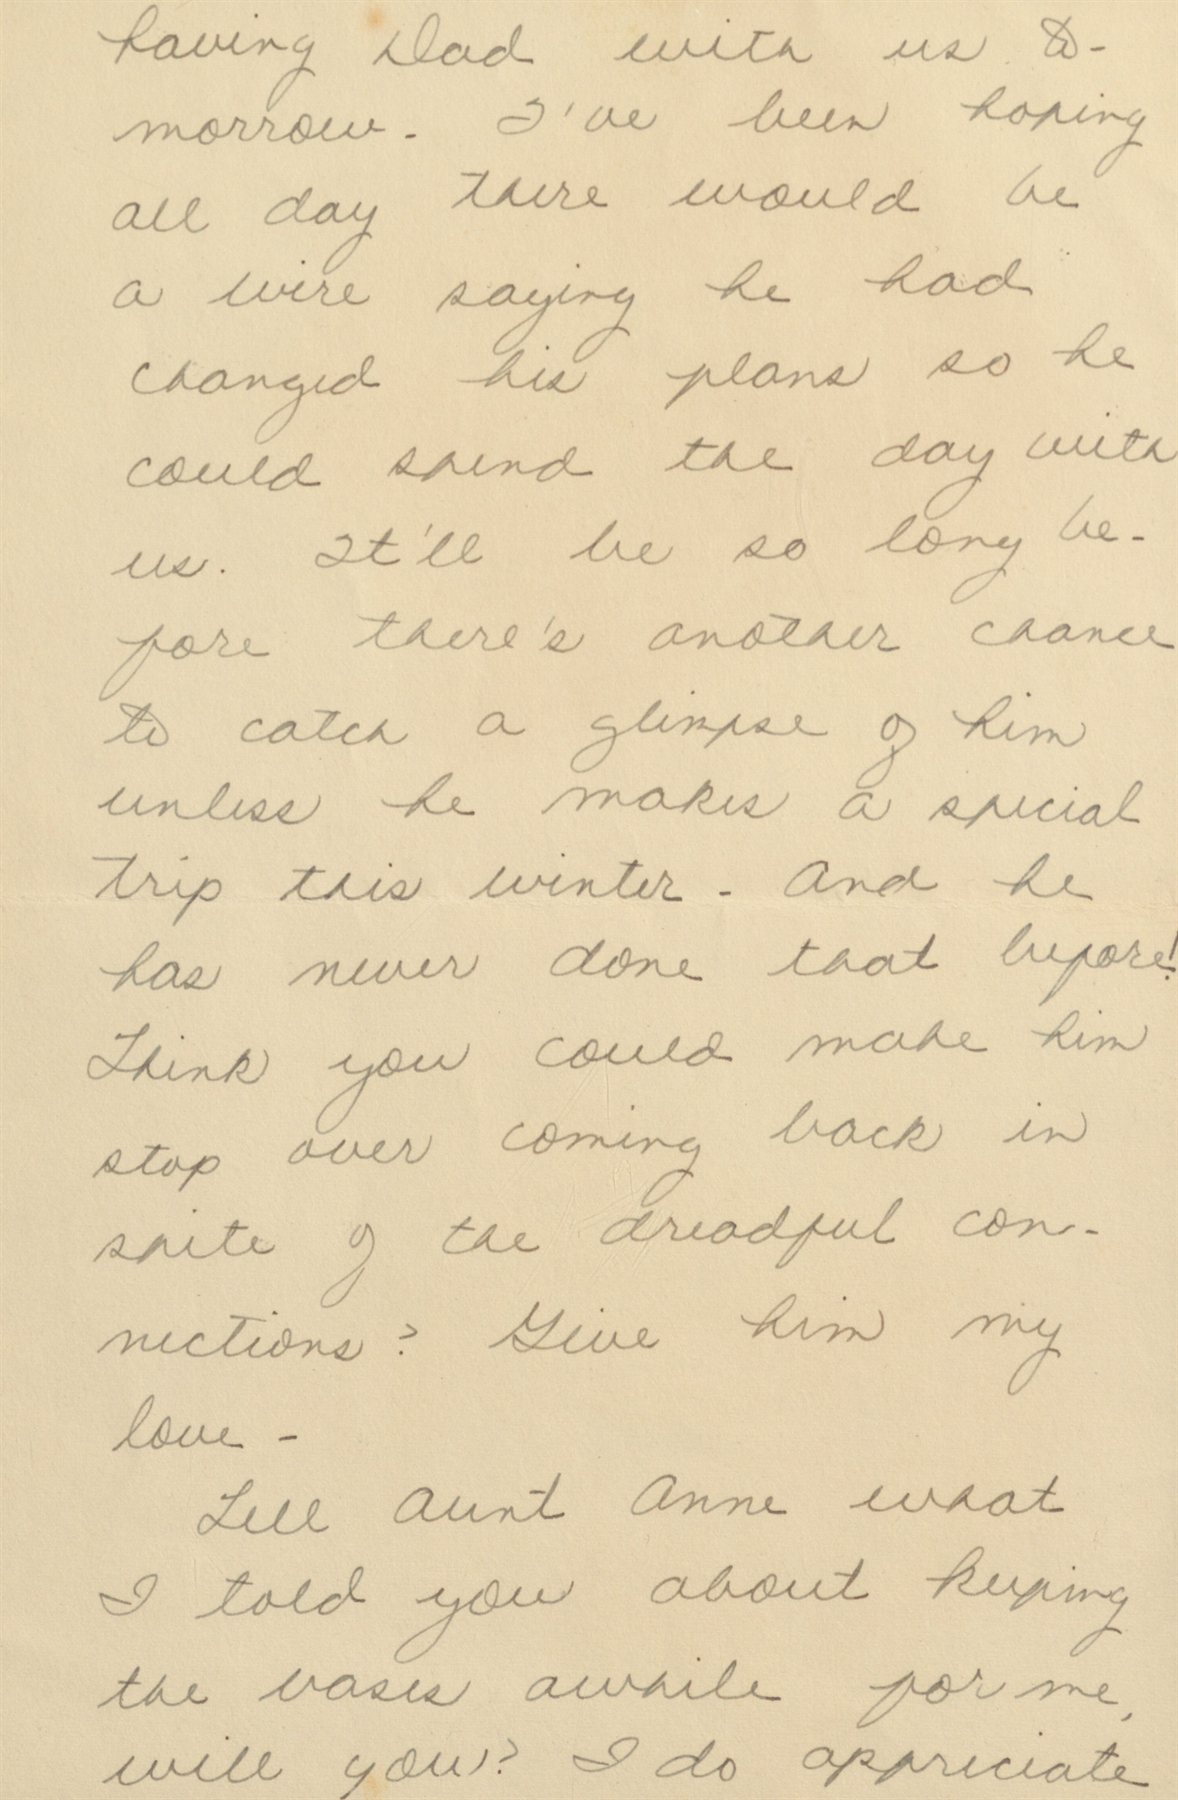 having Dad with us to-
morrow. I've been hoping
all day there would be
a wire saying he had
changed his plans so he
could spend the day with
us. It'll be so long be-
fore there's another chance
to catch a glimpse of him
unless he makes a special
trip this winter - And he
has never done that before!
Think you could make him
stop over coming back in
spite of the dreadful con-
nections? Give him my
love -
Tell Aunt Anne what
I told you about keeping
the vases awhile for me,
will you? I do appreciate